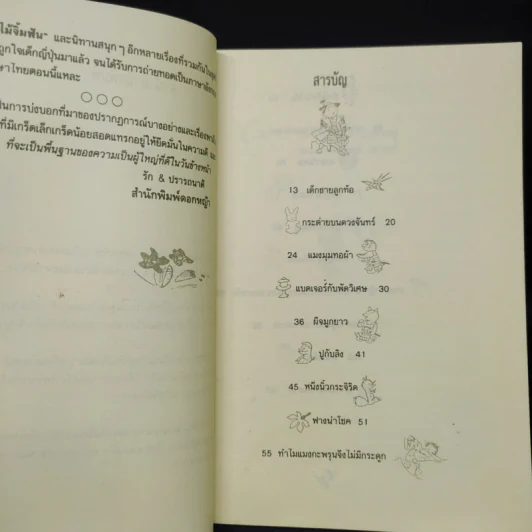 ไม้จิ้มฟัน" และนิทานสนุก ๆ อีกหลายเรื่องที่รวมกันใน
ถูกใจเด็กญี่ปุ่นมาแล้ว จนได้รับการถ่ายทอดเป็นภาษา
ษาไทยตอนนี้แหละ
○○○
ป็นการบ่งบอกที่มาของปรากฏการณ์บางอย่างและเรื่อง
ที่มีเกร็ดเล็กเกร็ดน้อยสอดแทรกอยู่ให้ยึดมั่นในความดี
ที่จะเป็นพื้นฐานของความเป็นผู้ใหญ่ที่ดีในวันข้างหน้า
รัก & ปรารถนาดี
สำนักพิมพ์ดอกหญ้า
สารบัญ
13 เด็กชายลูกท้อ
กระต่ายบนดวงจันทร์ 20
24 แมงมุมทอผ้า
แบดเจอร์กับพัดวิเศษ 30
36 ผีจมูกยาว
ปูกับลิง 41
45 หนึ่งนิ้วกระจิริด
ฟางนำโชค 51
55 ทำไมแมงกะพรุนจึงไม่มีกระดูก